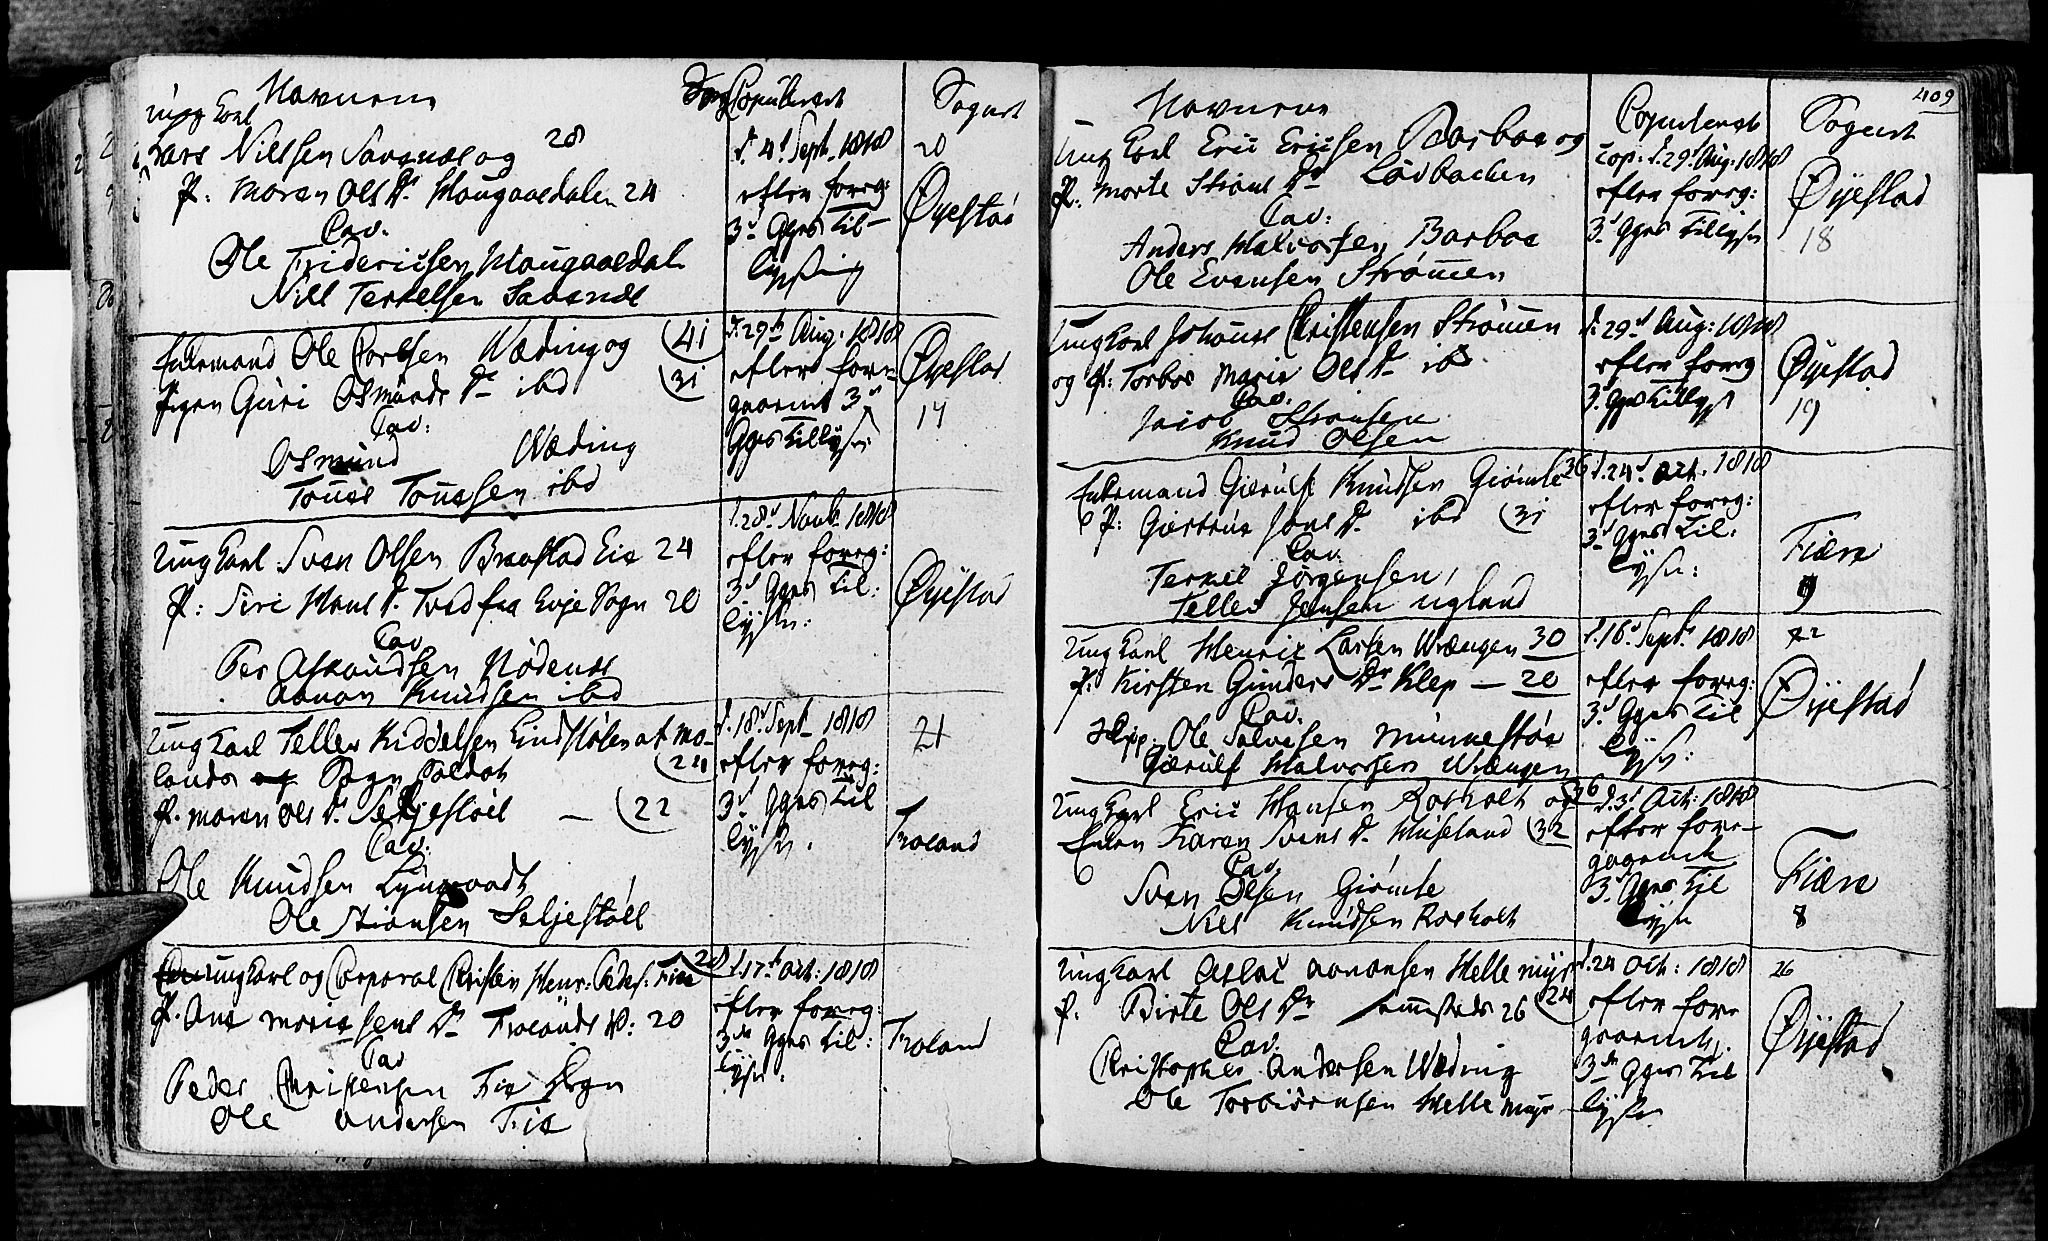 Navnene
Copuleret
Sognet
ung Karl
Lars Nielsen Savsnæs og 28
P: Maren Ols Dr. Hougaaedalen 24
Cav:
Ole Friderichsen Hougaaedal
Niels Terkelsen Savsnæs
d. 4de Sept. 1818
efter foreg:
3de Ggrs Til-
lysning
20
Øyestad
Enkemand Ole Carlsen Wæding og 41
Pigen Guri Osmunds Dr ibd 31
Cav:
Osmund Wæding
Tones Tonessen ibd
d. 29de Aug: 1818
efter fore-
gaaende 3de
Ggrs Tillysn:
Øyestad
14
Ung Karl Sven Olsen Braastad Eie 24
P: Siri Hans Dr. Tved fra Evje Sogn 20
Cav
Per Asmundsen Nødenes
Aanon Knudsen ibd
d. 28de Novb. 1818
efter foreg:
3de Ggrs Til:
lysn:
Øyestad
Ung Karl Tellev Kiddelsen Lindstølen af Mo-
lands Sogn Soldat 24
P. Maren Ols Dr. Seljestøel — 22
Cav:
Ole Knudsen Lyngvodt
Ole Stiansen Seljestøel
d. 18de Sept 1818
efter foreg:
3de Ggrs Til
lysn.
21
Froland
ung Karl og Corporal Christen Henr: Peders: Fiæ 28
P. Ane Marie Jens Dr Frolands V: 20
Cav
Peder Christensen Fiæ Sogn
Ole Andersen Fiæ
d. 17de Oct: 1818
efter foreg:
3de Ggrs Til:
lysn:
Froland
409
Navnene
Copuleret
Sognet
Ung Karl Eric Ericsen Barboe og
P. Marte Stians Dr Løvbachen
Cav:
Anders Halvorsen Barboe
Ole Evensen Strømmen
Cop: d. 29de Aug: 1818
efter foreg:
3de Ggrs Tillysn
Øyestad
18
Ung Karl Johannes Christensen Strømmen
og P: Torbor Marie Ols Dr ibd
Cav:
Jacob Stiansen
Knud Olsen
d. 29de Aug: 1818
efter foreg
3de Ggrs Tillys
Øyestad
19
Enkemand Gierulf Knudsen Giømle 36
P: Giertrue Jens Dr. ibd 31
Cav
Terkel Jørgensen,
Tellev Jensen Ugland
d. 24de Oct. 1818
efter foreg:
3de Ggrs Til:
lysn:
Fiære
9
Ung Karl Henric Larsen Wrængen 30
P: Kirsten Gunders Dr Klep — 20
Cav:
Ole Salvesen Munkestøe
Gierulf Halvorsen Wrængen
d. 16de Sept. 1818
efter foreg:
3de Ggrs Til
lysn:
22
Øyestad
Ung Karl Eric Hansen Roeholt og 36
Enken Karen Svens Dr. Huseland 32
Cav
Sven Olsen Giømle
Niels Knudsen Roeholt
d. 3de Oct: 1818
efter fore-
gaaende
3de Ggrs Til
lysn
Fiære
8
Ung Karl Aslac Aanonsen Hellemyr
P. Birte Ols Dr 26 24
Cav.
Christopher Andersen Wæding
Ole Torbiørnsen Hellemyr
d. 24 Oct: 1818
efter fore
gaaende
3de Ggrs Til
lysn
26
Øyestad